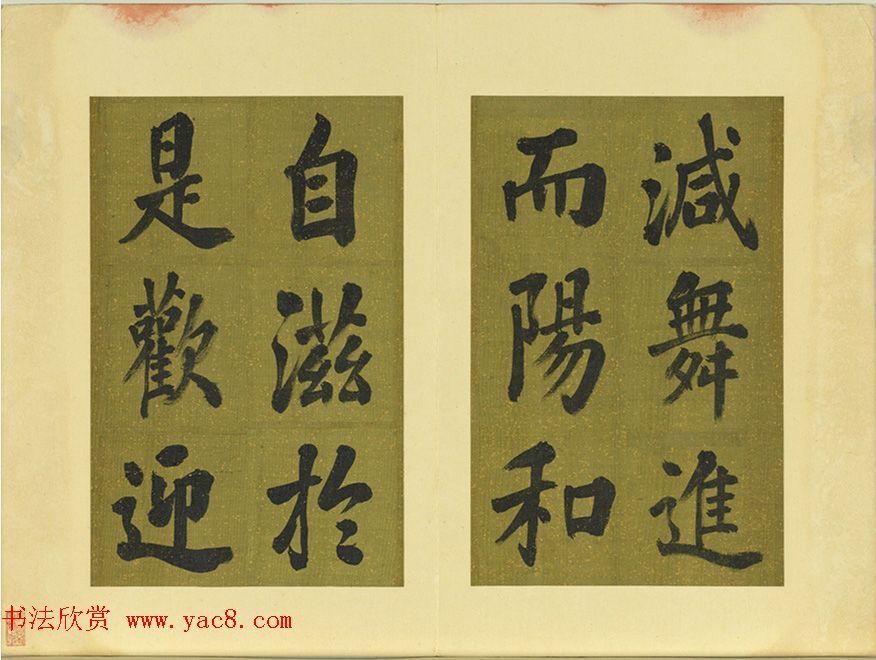 減舞進
而陽和
自滋於
是歡迎
书法欣赏 www.yac8.com